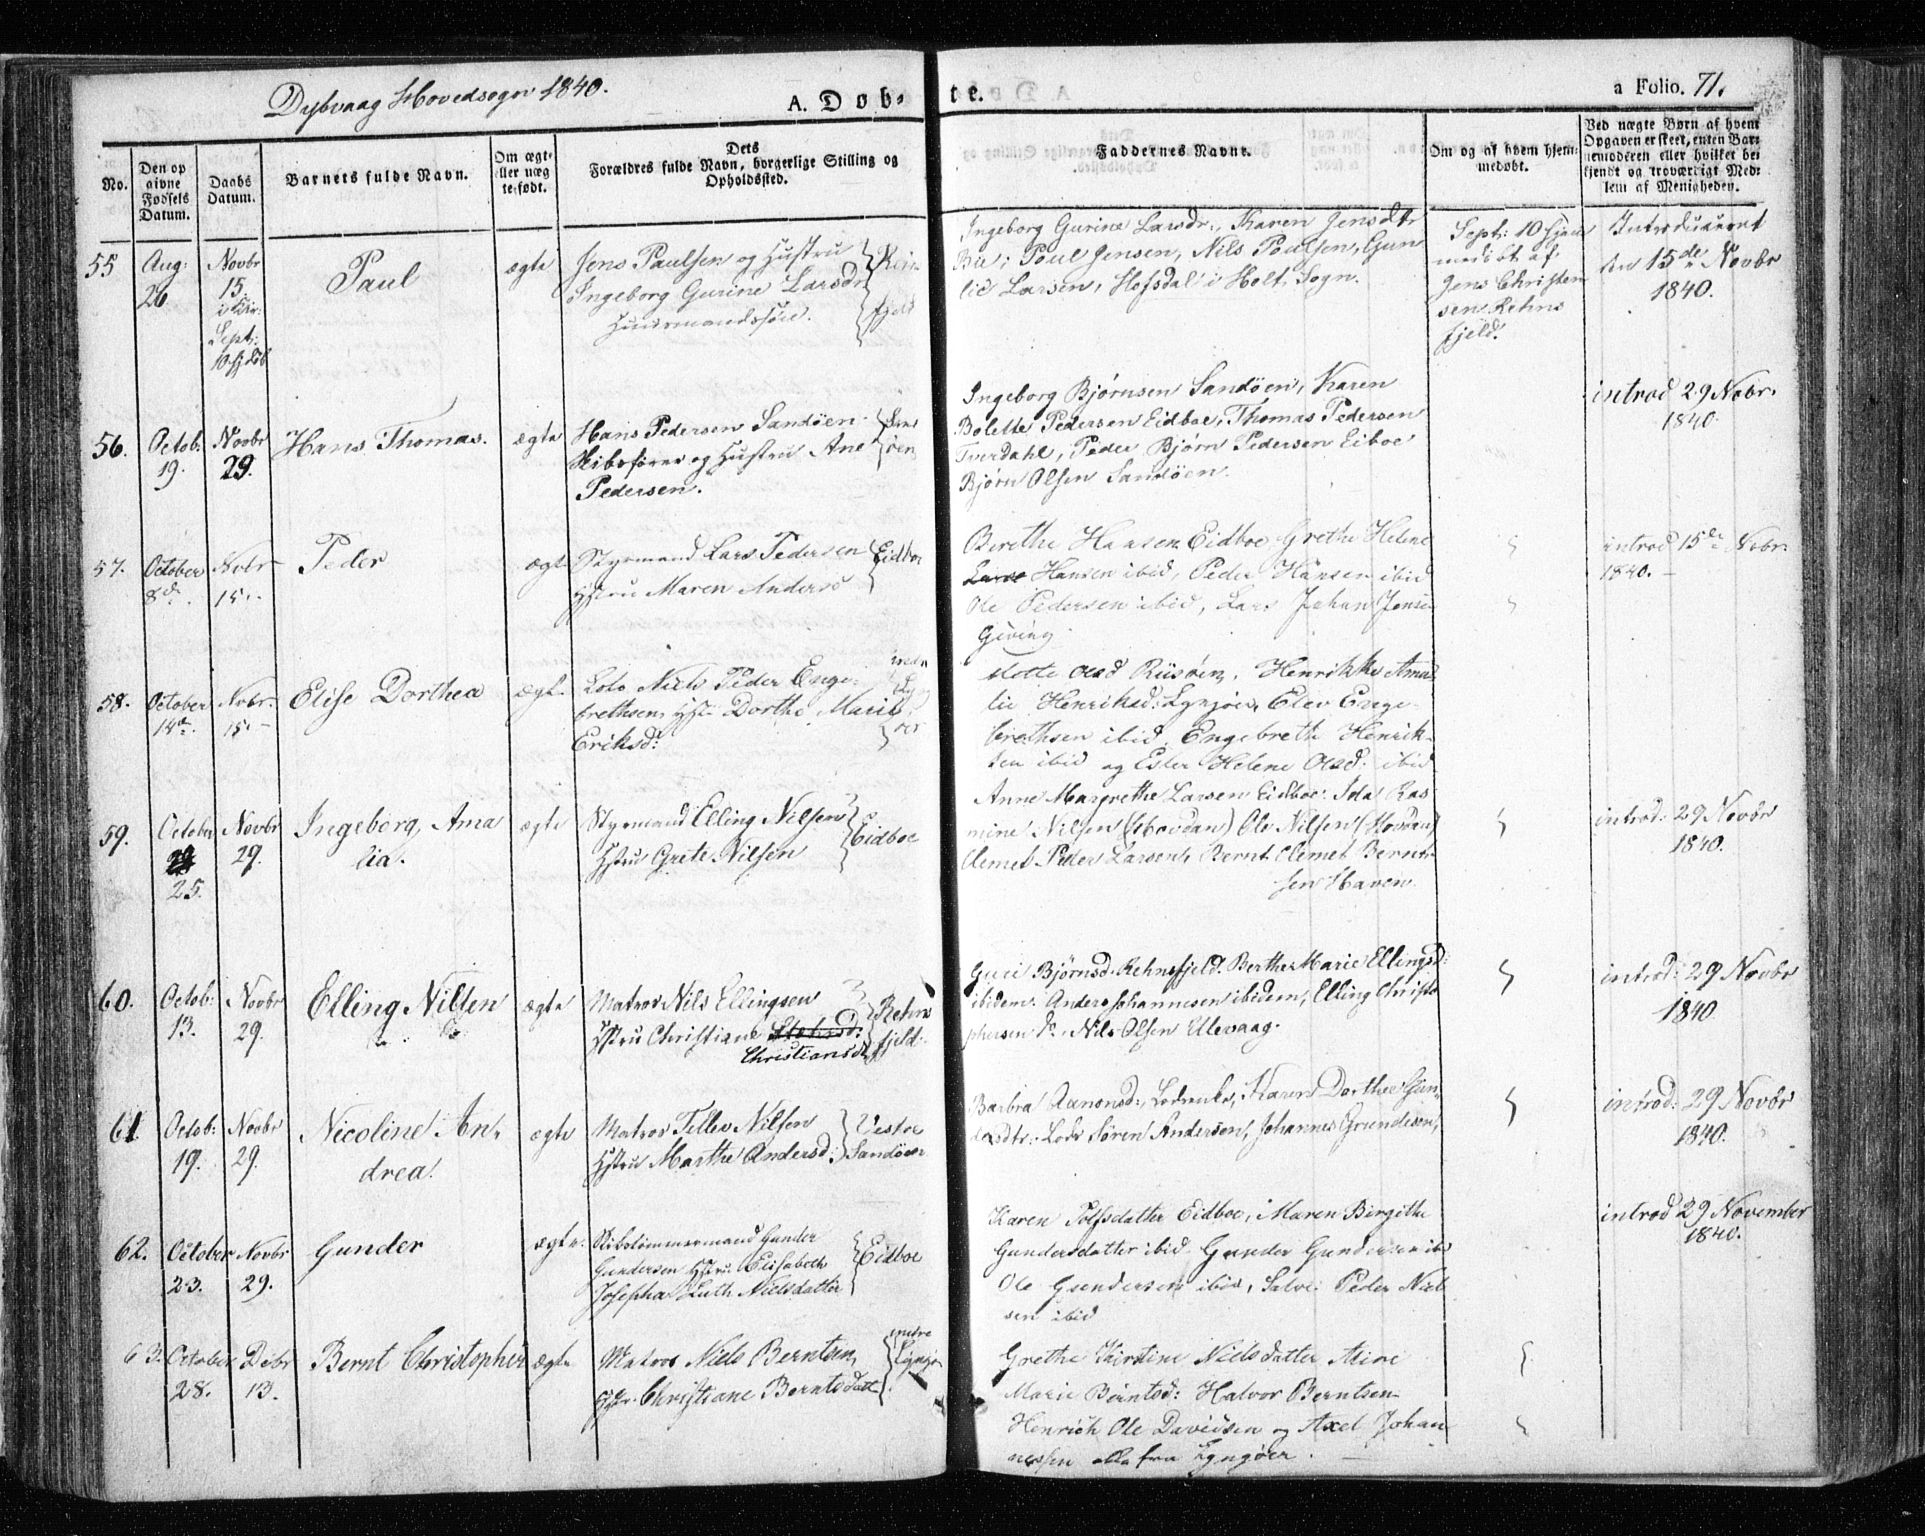 Dybvaag Hovedsogn 1840.
A. Døb-
te.
a Folio. 71.
No.
Den op
givne
Fødsels
Datum.
Daabs
Datum.
Barnets fulde Navn.
Om ægte
eller uæg
te født.
Dets
Forældres fulde Navn, borgerlige Stilling og
Opholdssted.
Faddernes Navne.
Om og af hvem hjem-
medøbt.
Ved uægte Børn af hvem
Opgaven er skeet, enten Bar-
nemoderen eller hvilket be-
kjendt og troværdigt Med-
lem af Menigheden.
55
Aug:
26
Novbr
15
Sept:
10 hj døb
Paul
ægte
Jens Paulsen og Hustru
Ingeborg Gurine Larsdr
Huusmandsfolk.
fjeld
Ingeborg Gurine Larsdr., Karen Jensdtr
Bie; Poul Jensen, Nils Poulsen, Gun
Larsen, Hofsdal i Holt Sogn.
Sept: 10 hjem
medøbt af
Jens Christen
sen Rehns
fjeld.
Introduceret
den 15de Novbr
1840.
56.
Octob:
19.
Novbr
29.
Hans Thomas.
ægte
Hans Pedersen Sandøen
Skibsfører og Hustru Ane
Pedersen.
San
øen
Ingeborg Bjørnsen Sandøen, Karen
Bolette Pedersen Eidboe, Thomas Pedersen
Tverdahl, Peder Bjørn Pedersen Eiboe
Bjørn Olsen Sandøen.
introd 29 Nobr.
1840.
57.
October
8de
Nvbr
15.
Peder
ægt
Styrmand Lars Pedersen
Hstru Maren Anders
Eidboe
Berethe Hansen Eidboe Grethe Helene
Hansen ibid, Peder Hansen ibid
Ole Pedersen ibid, Lars Johan Jens
Giving
introd 15de Nvbr.
1840.
58.
October
14de
Nvbr.
15.
Elise Dorthea
ægt
Lods Niels Peder Enge-
brethsen, Hst Dorthe Marie
Eriksd:
Mette Olsd Riisøen, Henrikke Ama
lie Henriksd: Lyngøer, Elev Enge-
brethsen ibid, Engebreth Henrik-
sen ibid og Ester Helene Olsd. ibid
59.
October
25.
Novbr
29.
Ingeborg Ama
lia.
ægte
Styrmand Elling Nilsen
Hstru Grete Nilsen
Eidboe
Anne Margrethe Larsen Eidboe. Ida Ras
mine Nilsen (Hovdan) Ole Nilsen (Hovdan)
Clemet Peder Larsen, Bernt Clemet Bernt-
sen Haven.
introd: 29 Novbr
1840.
60.
Octob:
13.
Novbr
29.
Elling Nilsen
ægte
Matros Nils Ellingsen
Hstru Christiane
Christiansd
Rehns
fjeld.
Guri Bjørnsd. Rehnsfjeld. Berthe Marie Ellingsd:
ibidem. Anders Johannesen ibidem, Elling Christo
phersen do. Nils Olsen Ellevaag.
introd: 29 Novbr
1840
61
Octob:
19.
Novbr
29.
Nicoline An-
drea.
ægte
Matros Tellev Nilsen
Hstru Marthe Andersd:
Vestre
Sandøen
Barbra Aanonsd:, Karen Dorthea Gun
dersdtr. Lods Søren Andersen, Johannes Grundesen,
introd: 29 Novbr
1840.
62.
October
23.
Novbr
29.
Gunder
ægte.
Skibstømmermand Gunder
Gundersen Hstru. Elisabeth
Josepha Luth Nielsdatter
Eidboe
Karen Rolfsdatter Eidboe, Maren Birgithe
Gundersdatter ibid. Gunder Gundersen ibd
Ole Gundersen ibid, Salve Peder Niel
sen ibid
introd 29 November
1840.
63.
October
28.
Debr
13.
Bernt Christopher
ægte
Matros Niels Berntsen,
Hst. Christiane Berntsdatt
indre
Lyngør
Grethe Kirstine Nielsdatter
Marie Berntsd: Halvor Berntsen
Henrich Ole Davidsen og Axel Johan
nessen alle fra Lyngøer.